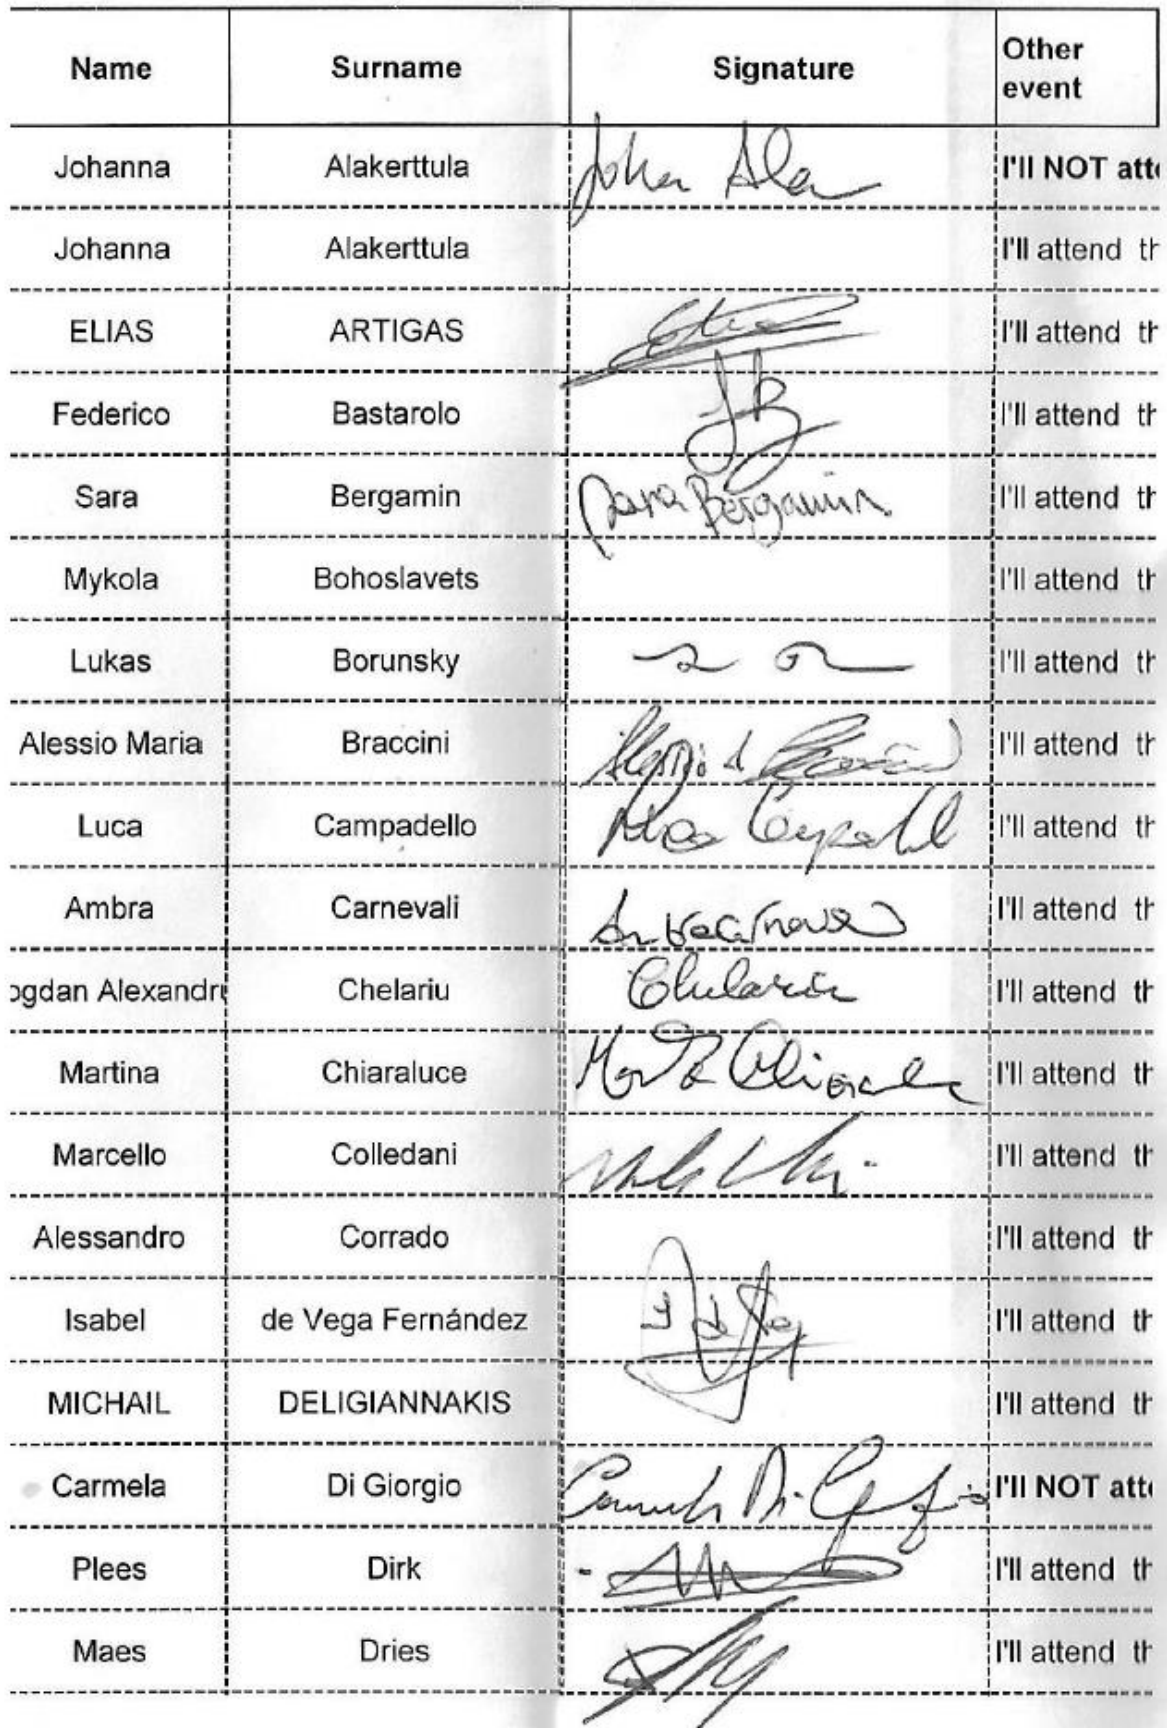 Name Surname Signature Other event
Johanna Alakerttula I'll NOT att
Johanna Alakerttula I'll attend th
ELIAS ARTIGAS I'll attend th
Federico Bastarolo FB I'll attend th
Sara Bergamin Sara Bergamin I'll attend th
Mykola Bohoslavets I'll attend th
Lukas Borunsky I'll attend th
Alessio Maria Braccini I'll attend th
Luca Campadello I'll attend th
Ambra Carnevali I'll attend th
ogdan Alexandru Chelariu Chelariu I'll attend th
Martina Chiaraluce I'll attend th
Marcello Colledani I'll attend th
Alessandro Corrado I'll attend th
Isabel de Vega Fernández I'll attend th
MICHAIL DELIGIANNAKIS I'll attend th
Carmela Di Giorgio I'll NOT att
Plees Dirk I'll attend th
Maes Dries I'll attend th